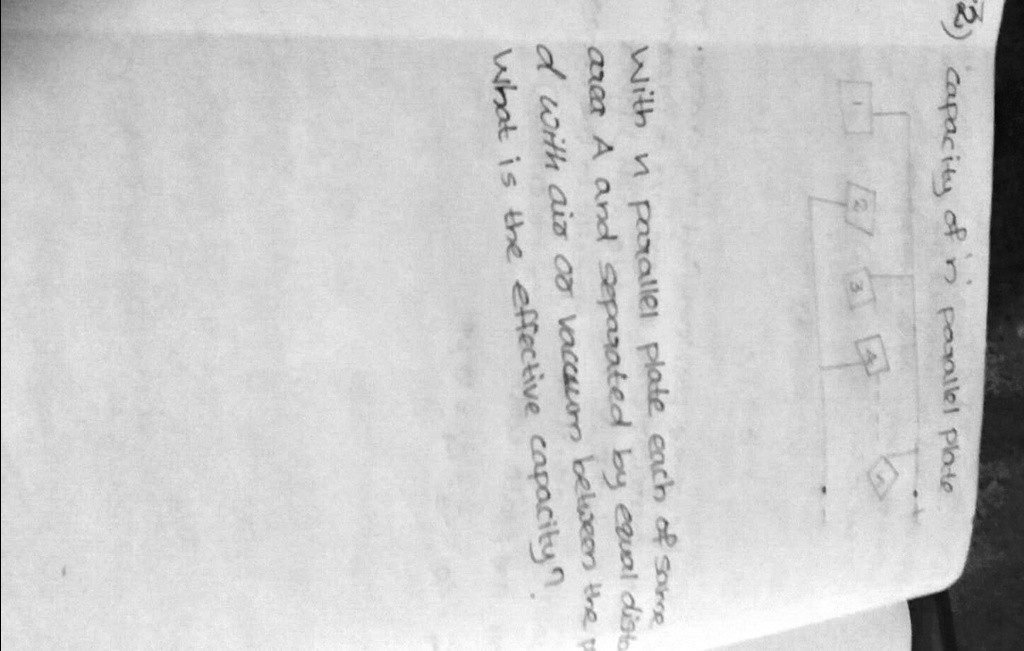 2) capacity of 'n' parallel plate
1 2 3 4 n
With n parallel plate each of same
area A and separated by equal dista
d with air or vaccum between the p
What is the effective capacity?